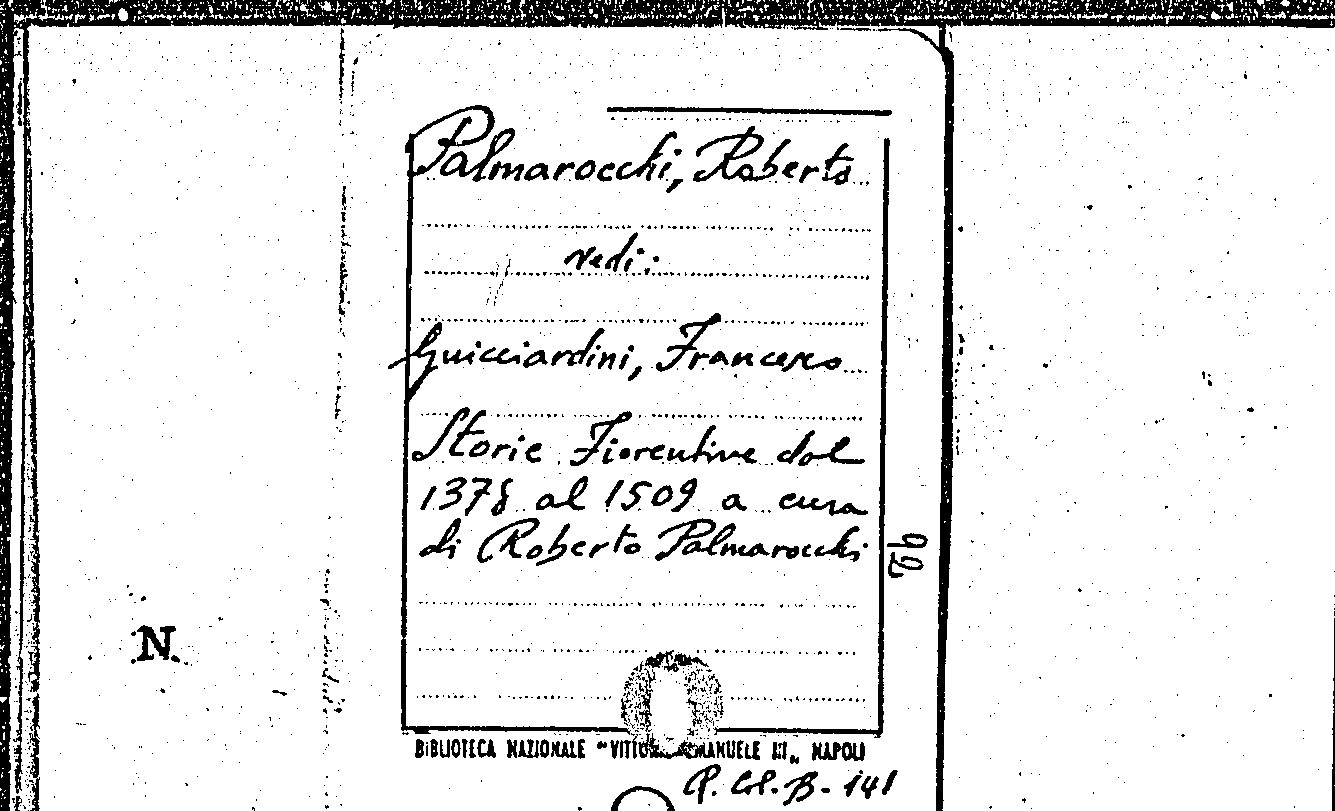 Palmarocchi, Roberto
vedi:
Guicciardini, Francesco
Storie Fiorentine dal
1378 al 1509 a cura
di Roberto Palmarocchi
N.
BIBLIOTECA NAZIONALE "VITTORIO EMANUELE III„ NAPOLI